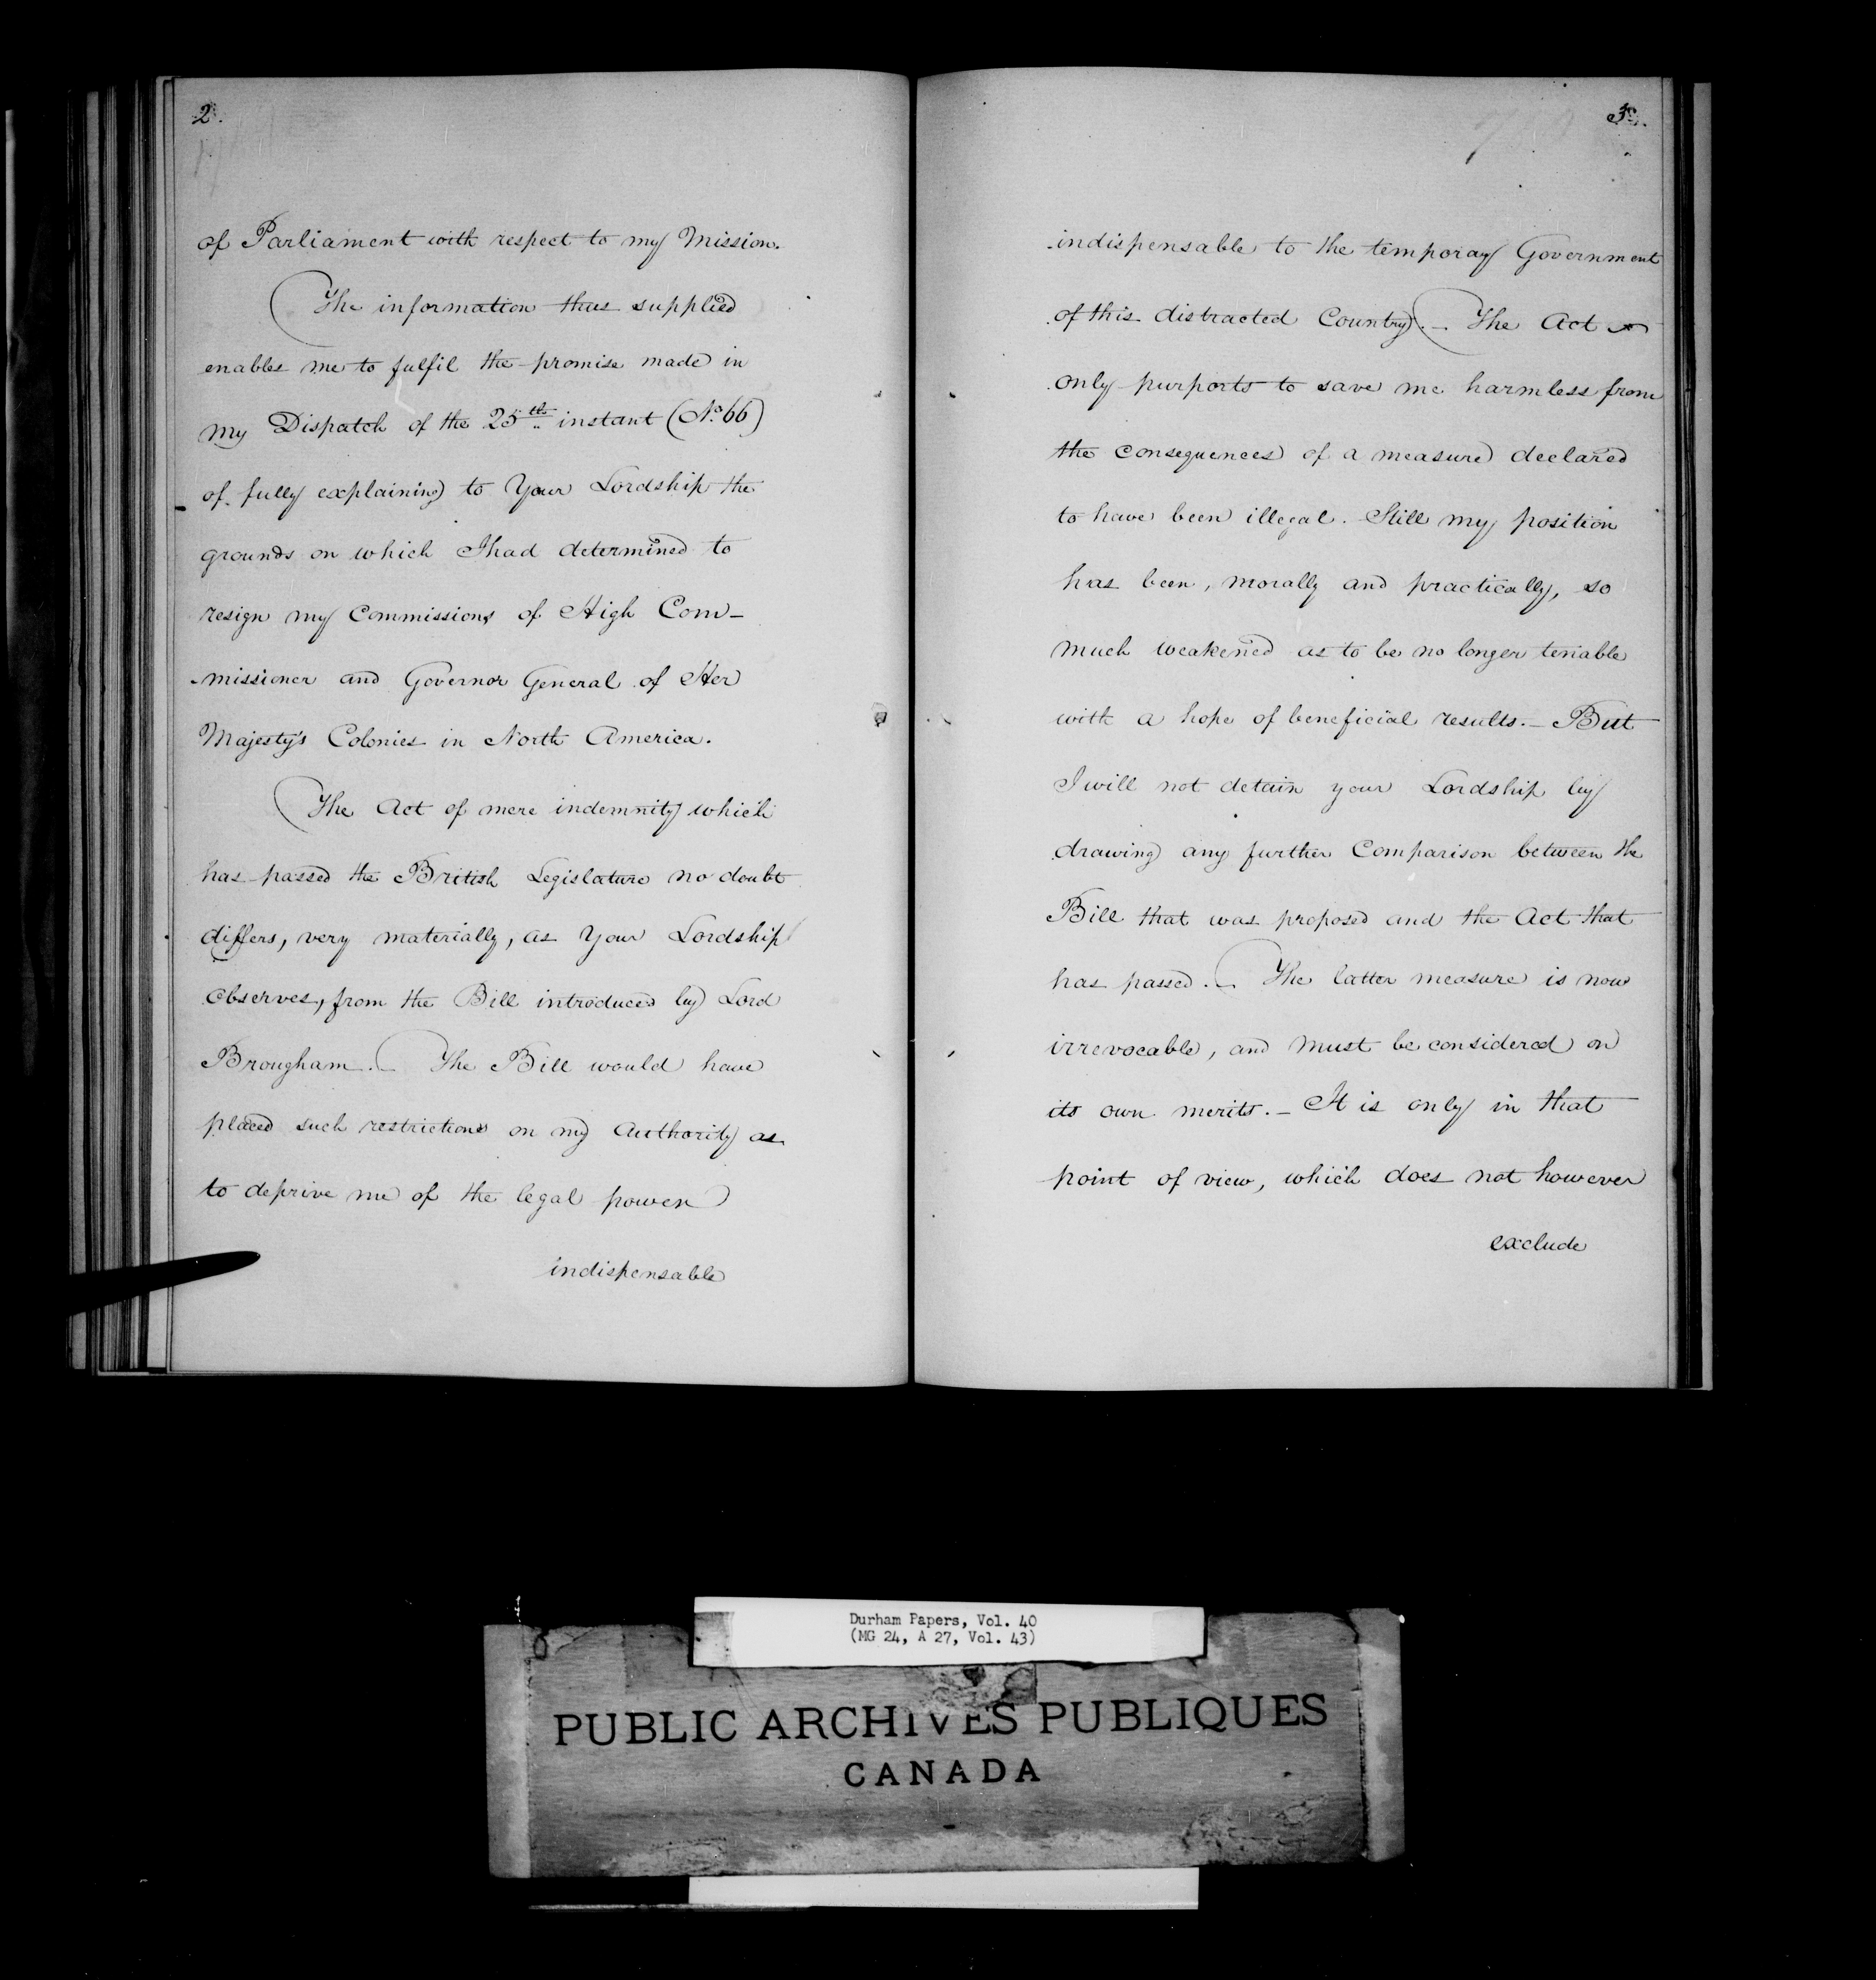 2.
of Parliament with respect to my Mission.
The information thus supplied
enables me to fulfil the promise made in
my Dispatch of the 25th instant (No. 66)
of fully explaining to Your Lordship the
grounds on which I had determined to
resign my Commissions of High Com-
-missioner and Governor General of Her
Majesty's Colonies in North America.
The Act of mere indemnity which
has passed the British Legislature no doubt
differs, very materially, as Your Lordship
observes, from the Bill introduced by Lord
Brougham. The Bill would have
placed such restrictions on my Authority as
to deprive me of the legal power
indispensable
3.
indispensable to the temporay Government
of this distracted Country. - The Act
only purports to save me harmless from
the consequences of a measure declared
to have been illegal. Still my position
has been, morally and practically, so
much weakened as to be no longer tenable
with a hope of beneficial results. - But
I will not detain your Lordship by
drawing any further Comparison between the
Bill that was proposed and the Act that
has passed. - The latter measure is now
irrevocable, and must be considered on
its own merits. - It is only in that
point of view, which does not however
exclude
Durham Papers, Vol. 40
(MG 24, A 27, Vol. 43)
PUBLIC ARCHIVES PUBLIQUES
CANADA